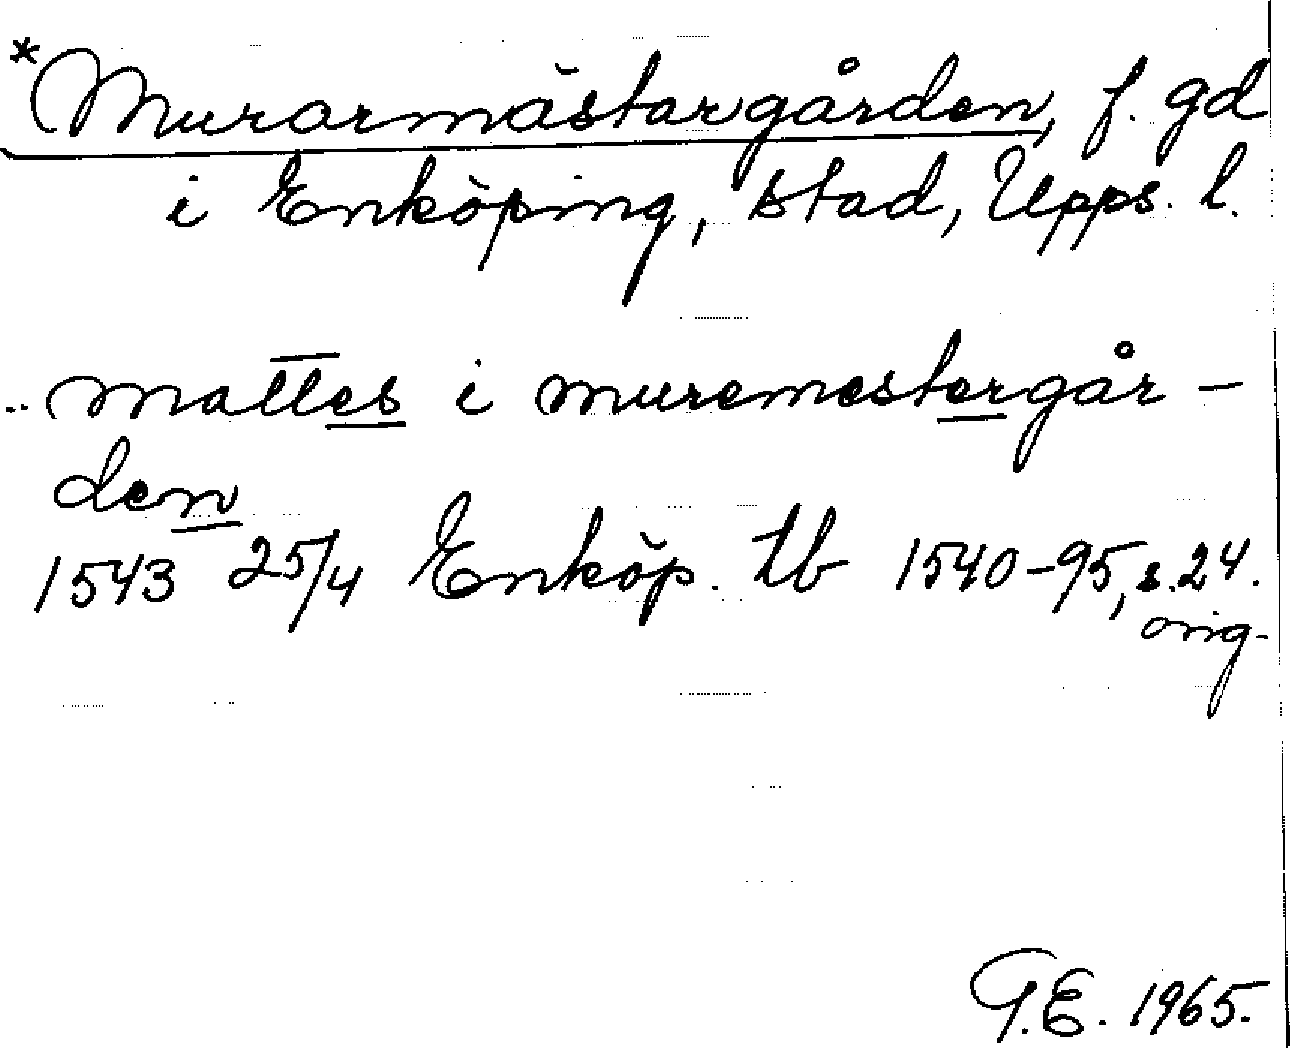 *Murarmästargården, f. gd
i Enköping, stad, Upps. l.
.. mattes i muremestergår-
den
1543 25/4 Enköp. tb 1540-95, s. 24.
orig.
G.E. 1965.